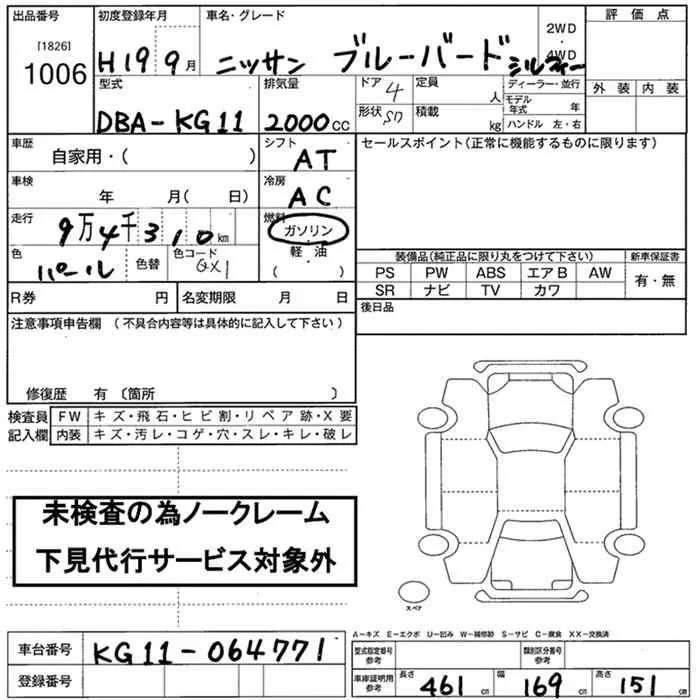 出品番号 初度登録年月 車名・グレード 評価点
[1826]
1006 H19 9月 ニッサン ブルーバードシルフィー 2WD・4WD
外装 内装
型式 排気量 ドア 4 定員 人 ディーラー・並行
DBA-KG11 2000cc 形状 SD 積載 kg モデル年式 年
ハンドル 左・右
車歴 シフト セールスポイント(正常に機能するものに限ります)
自家用・( ) AT
車検 冷房
年 月( 日) AC
走行 燃料
9万4千310km ガソリン
・
軽油
・
( )
色 色替 色コード
パール QX1
装備品(純正品に限り丸をつけて下さい) 新車保証書
PS PW ABS エアB AW 有・無
SR ナビ TV カワ
R券 円 名変期限 月 日 後日品
注意事項申告欄(不具合内容等は具体的に記入して下さい)
修復歴 有 〔箇所 〕
検査員 FW キズ・飛石・ヒビ割・リペア跡・X要
記入欄 内装 キズ・汚レ・コゲ・穴・スレ・キレ・破レ
未検査の為ノークレーム
下見代行サービス対象外
スペア
A-キズ E-エクボ U-凹み W-補修跡 S-サビ C-腐食 XX-交換済
車台番号 KG11-064771 型式指定番号 参考 類別区分番号 参考
登録番号 車庫証明用 参考 長さ 461cm 幅 169cm 高さ 151cm